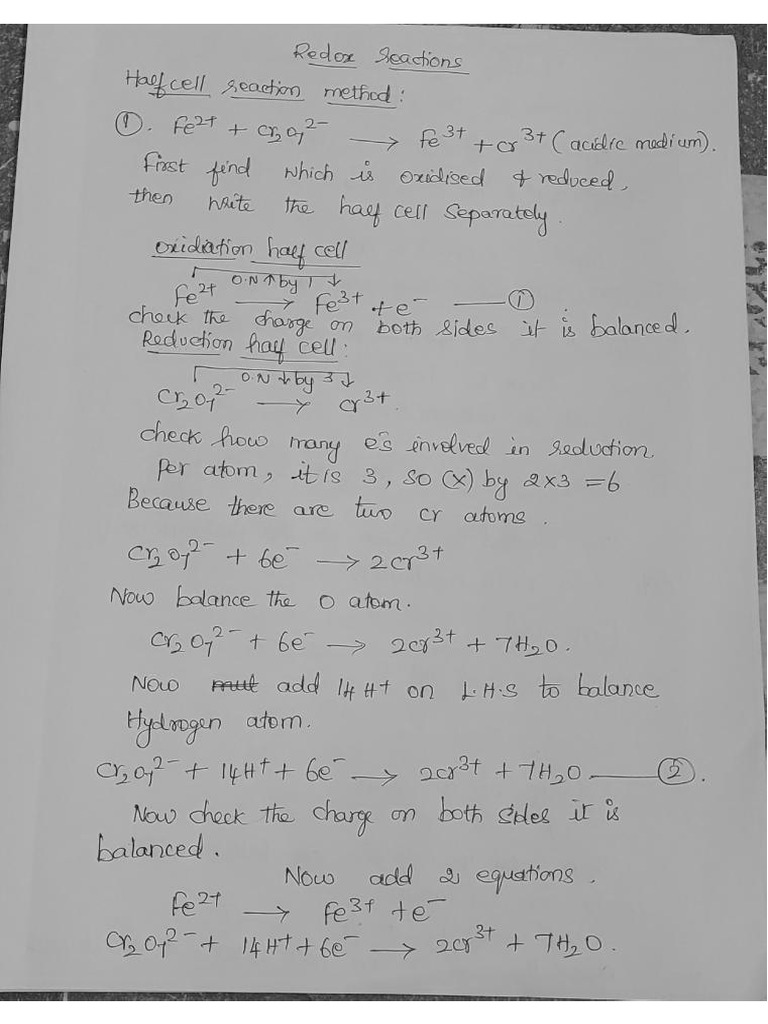 Redox Reactions
Half cell reaction method:
①. Fe²⁺ + Cr₂O₇²⁻ → Fe³⁺ + Cr³⁺ (acidic medium).
First find which is oxidised & reduced,
then write the half cell separately.
oxidiation half cell
O.N ↑ by 1 ↓
Fe²⁺ → Fe³⁺ + e⁻ —— ①
check the charge on both sides it is balanced.
Reduction half cell:
O.N ↓ by 3 ↓
Cr₂O₇²⁻ → Cr³⁺.
check how many e⁻s involved in reduction
per atom, it is 3, so (x) by 2x3 = 6
Because there are two cr atoms.
Cr₂O₇²⁻ + 6e⁻ → 2Cr³⁺
Now balance the O atom.
Cr₂O₇²⁻ + 6e⁻ → 2Cr³⁺ + 7H₂O.
Now add 14H⁺ on L.H.S to balance
Hydrogen atom.
Cr₂O₇²⁻ + 14H⁺ + 6e⁻ → 2Cr³⁺ + 7H₂O —— ②.
Now check the charge on both sides it is
balanced.
Now add 2 equations.
Fe²⁺ → Fe³⁺ + e⁻
Cr₂O₇²⁻ + 14H⁺ + 6e⁻ → 2Cr³⁺ + 7H₂O.